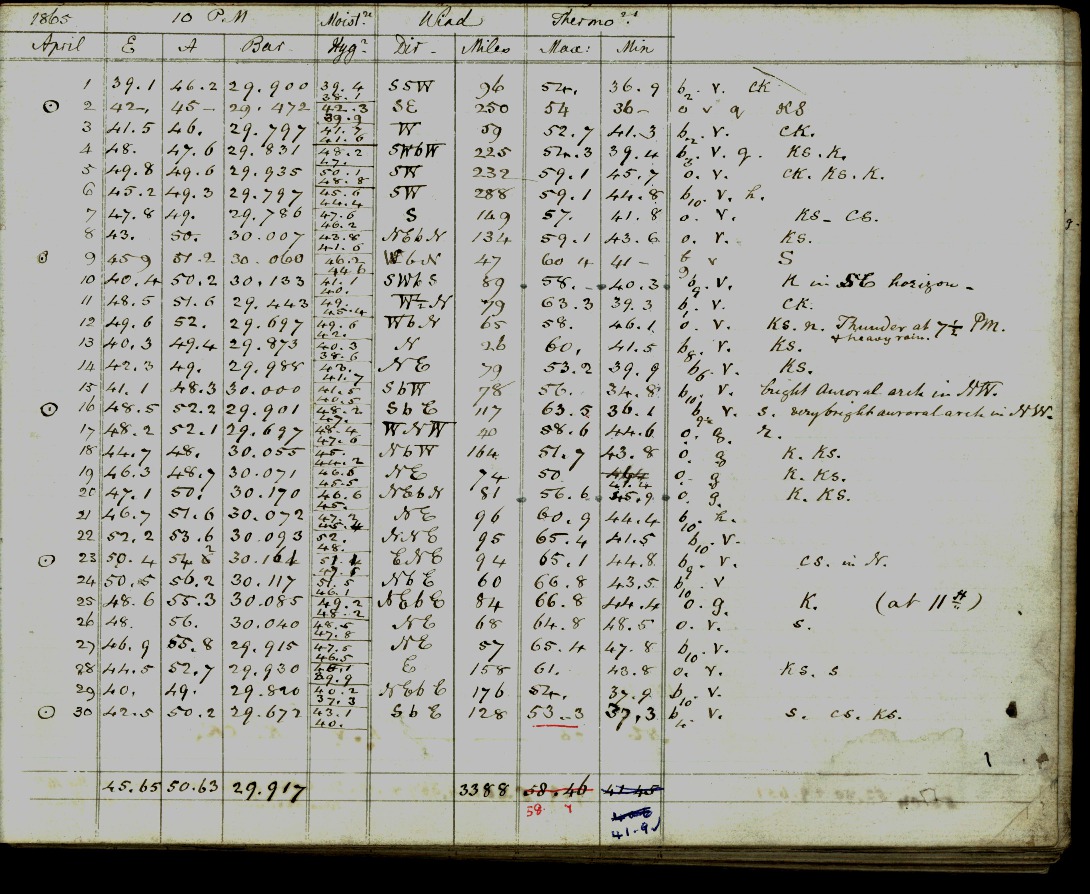 1865 10 P.M Moist.re Wind Thermo.rs
April E A Bar Hyg.r Dir Miles Max: Min
1 39.1 46.2 29.900 39.4 38.1 SSW 96 54. 36.9 b2. v. CK
⊙ 2 42-, 45- 29.472 42.3 39.9 SE 250 54 36- o v q KS
3 41.5 46. 29.797 41.7 41.6 W 59 52.7 41.3 b2. v. CK.
4 48. 47.6 29.831 48.2 47. SWbW 225 54.3 39.4 v. q. KS.K.
5 49.8 49.6 29.935 50.1 48.8 SW 232 59.1 45.7 o. v. CK. KS. K.
6 45.2 49.3 29.797 45.6 44.4 SW 288 59.1 44.8 b10. v. h.
7 47.8 49. 29.786 47.6 46.2 S 149 57. 41.8 o. v. KS- CS.
8 43. 50. 30.007 43.8 41.6 NEbN 134 59.1 43.6 o. v. KS.
9 459 51.2 30.060 46.2 44.6 WbN 47 60 4 41- v S
10 40.4 50.2 30.133 41.1 40. SWbS 89 58. 40.3 b9. v. K in SE horizon-
11 48.5 51.6 29.443 49. 45.4 W½N 79 63.3 39.3 v. CK.
12 49.6 52. 29.697 49.6 WbN 65 58. 46.1 o. v. KS. r. Thunder at 7½ PM.
+heavy rain.
13 40.3 49.4 29.873 40.3 38.6 N 26 60, 41.5 b8. v. KS.
14 42.3 49. 29.988 43. 41.7 NE 79 53.2 39.9 b6. v. KS.
15 41.1 48.3 30.000 41.5 40.5 SbW 78 56. 34.8 b10. v. bright Auroral arch in NW.
⊙ 16 48.5 52.2 29.901 48.2 47. SbE 117 63.5 36.1 v. s. very bright auroral arch in NW.
17 48.2 52.1 29.697 48.4 47.6 WNW 40 58.6 44.6 o. g. r.
18 44.7 48. 30.055 45. 44.2 NbW 164 51.7 43.8 o. g K. KS.
19 46.3 48.7 30.071 46.5 45.5 NE 74 50 41.4 o. g K. KS.
20 47.1 50. 30.170 46.6 45. NEbN 81 56.6 35.9 o. g. K. KS.
21 46.7 51.6 30.072 47.2 45.4 NE 96 60.9 44.4 b10. h.
22 52.2 53.6 30.093 52. 48. NNE 95 65.4 41.5 b10. v.
⊙ 23 50.4 54.2 30.161 51.1 ENE 94 65.1 44.8 b9. v. CS. in N.
24 50.5 56.2 30.117 51.5 46.1 NbE 60 66.8 43.5 b10. v
25 48.6 55.3 30.085 49.2 48.2 NEbE 84 66.8 44.4 o. g. K. (at 11 H)
26 48. 56. 30.040 48.5 47.8 NE 68 64.8 48.5 o. v. s.
27 46.9 55.8 29.915 47.5 46.5 NE 57 65.4 47.8 b10. v.
28 44.5 52.7 29.930 39.9 E 158 61. 43.8 o. v. KS. s
29 40. 49. 29.820 40.2 37.3 NEbE 176 54. 37.9 b10. v.
⊙ 30 42.5 50.2 29.672 43.1 40. SbE 128 53.3 37.3 b4. v. s. cs. KS.
45.65 50.63 29.917 3388 58.46 41.45
58.7
41.9